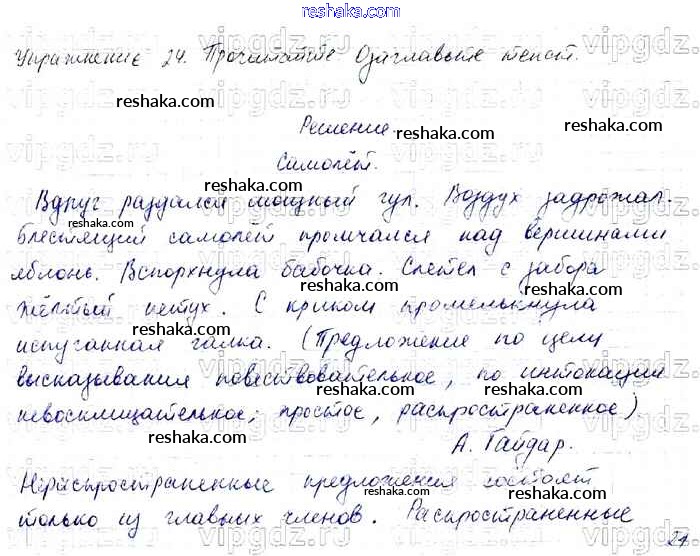 reshaka.com
Упражнение 24. Прочитайте. Озаглавьте текст.
reshaka.com reshaka.com
Решение.
reshaka.com
Самолёт.
reshaka.com
Вдруг раздался мощный гул. Воздух задрожал.
reshaka.com
Блестящий самолёт промчался над вершинами
reshaka.com
яблонь. Вспорхнула бабочка. Слетел с забора
reshaka.com
жёлтый петух. С криком промелькнула
reshaka.com
испуганная галка. (Предложение по цели
reshaka.com
высказывания повествовательное, по интонации
reshaka.com
невосклицательное; простое, распространенное)
reshaka.com
А. Гайдар.
reshaka.com
Нераспространенные предложения состоят
reshaka.com
только из главных членов. Распространенные
reshaka.com
24